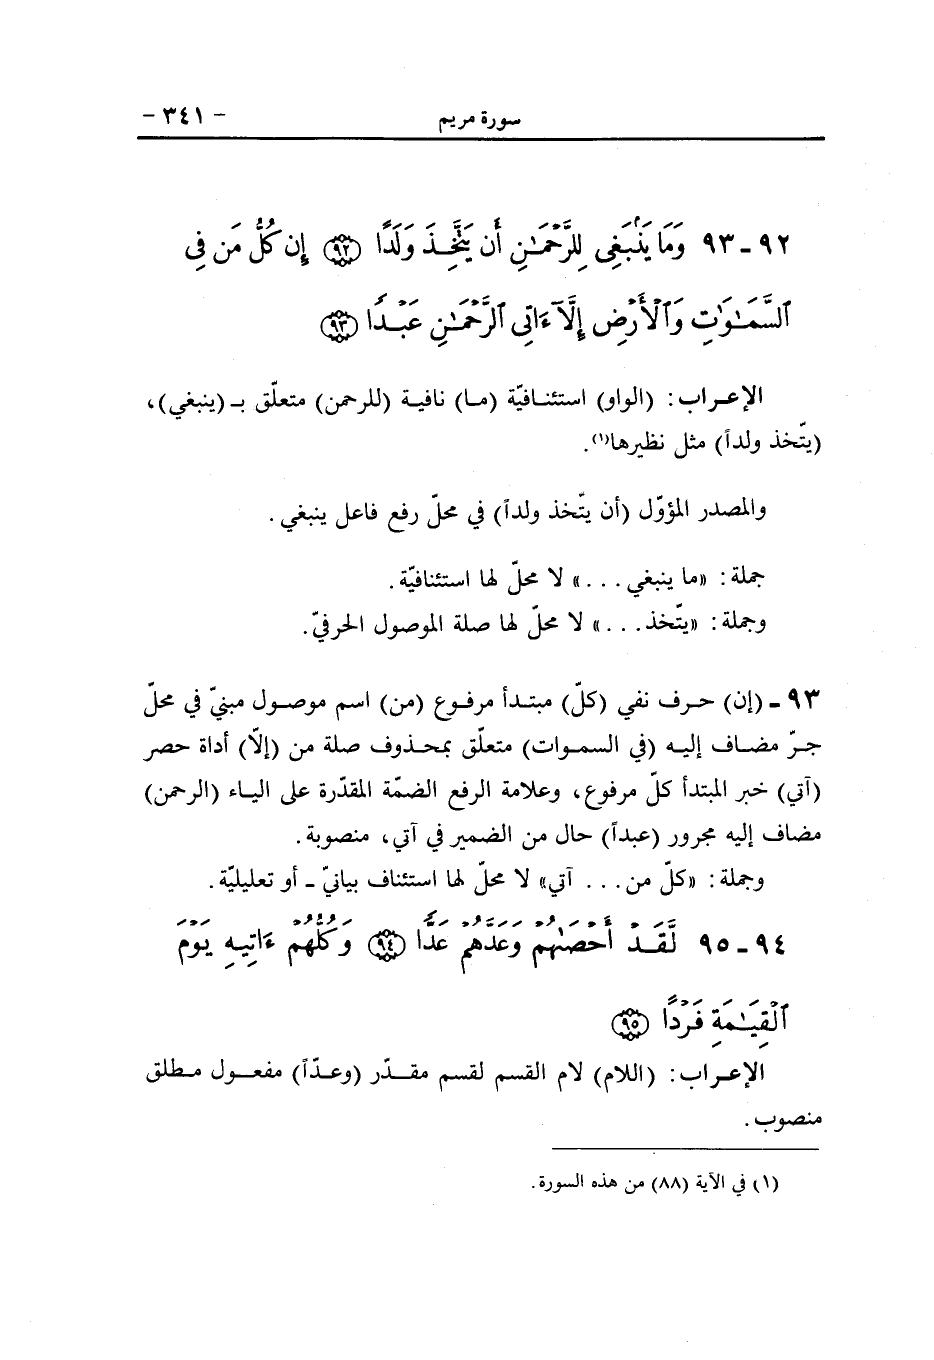 سورة مريم - ٣٤١ -
٩٢ - ٩٣ وَمَا يَنۢبَغِى لِلرَّحْمَـٰنِ أَن يَتَّخِذَ وَلَدًا ﴿٩٢﴾ إِن كُلُّ مَن فِى
ٱلسَّمَـٰوَٰتِ وَٱلْأَرْضِ إِلَّآ ءَاتِى ٱلرَّحْمَـٰنِ عَبْدًا ﴿٩٣﴾
الإعراب : (الواو) استئنافيّة (ما) نافية (للرحمن) متعلّق بـ (ينبغي)،
(يتّخذ ولداً) مثل نظيرها(١).
والمصدر المؤوّل (أن يتّخذ ولداً) في محلّ رفع فاعل ينبغي .
جملة : «ما ينبغي . . .» لا محلّ لها استئنافيّة .
وجملة : «يتّخذ . . .» لا محلّ لها صلة الموصول الحرفيّ .
٩٣ - (إن) حرف نفي (كلّ) مبتدأ مرفوع (من) اسم موصول مبنيّ في محلّ
جرّ مضاف إليه (في السموات) متعلّق بمحذوف صلة من (إلّا) أداة حصر
(آتي) خبر المبتدأ كلّ مرفوع، وعلامة الرفع الضمّة المقدّرة على الياء (الرحمن)
مضاف إليه مجرور (عبداً) حال من الضمير في آتي، منصوبة .
وجملة : «كلّ من . . . آتي» لا محلّ لها استئناف بيانيّ - أو تعليليّة .
٩٤ - ٩٥ لَّقَدْ أَحْصَىٰهُمْ وَعَدَّهُمْ عَدًّا ﴿٩٤﴾ وَكُلُّهُمْ ءَاتِيهِ يَوْمَ
ٱلْقِيَـٰمَةِ فَرْدًا ﴿٩٥﴾
الإعراب : (اللام) لام القسم لقسم مقدّر (وعدّاً) مفعول مطلق
منصوب .
(١) في الآية (٨٨) من هذه السورة .